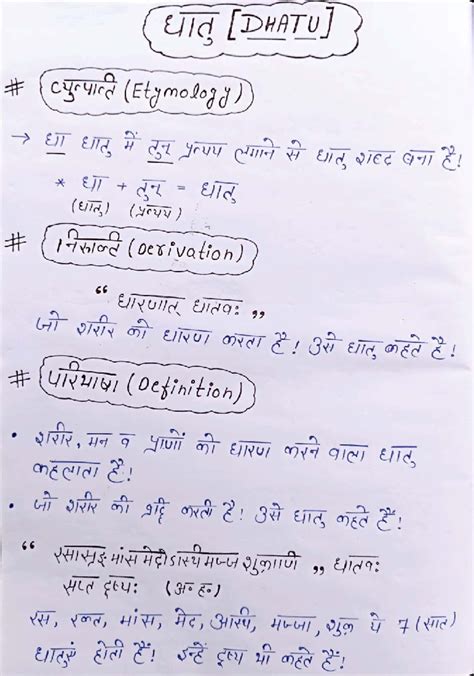 धातु [DHATU]
# व्युत्पत्ति (Etymology)
→ धा धातु में तुन् प्रत्यय लगाने से धातु शब्द बना है!
* धा + तुन् = धातु
(धातु) (प्रत्यय)
# निरुक्ति (Derivation)
“ धारणात् धातवः ”
जो शरीर को धारण करता है! उसे धातु कहते है!
# परिभाषा (Definition)
• शरीर, मन व प्राणों को धारण करने वाला धातु
कहलाता है!
• जो शरीर की वृद्धि करती है! उसे धातु कहते हैं!
“ रसासृङ्मांसमेदोऽस्थिमज्जशुक्राणि ” धातवः
सप्त दूष्यः (अ.ह.)
रस, रक्त, मांस, मेद, अस्थि, मज्जा, शुक्र ये 7 (सात)
धातुएं होती हैं! इन्हें दूष्य भी कहते हैं!